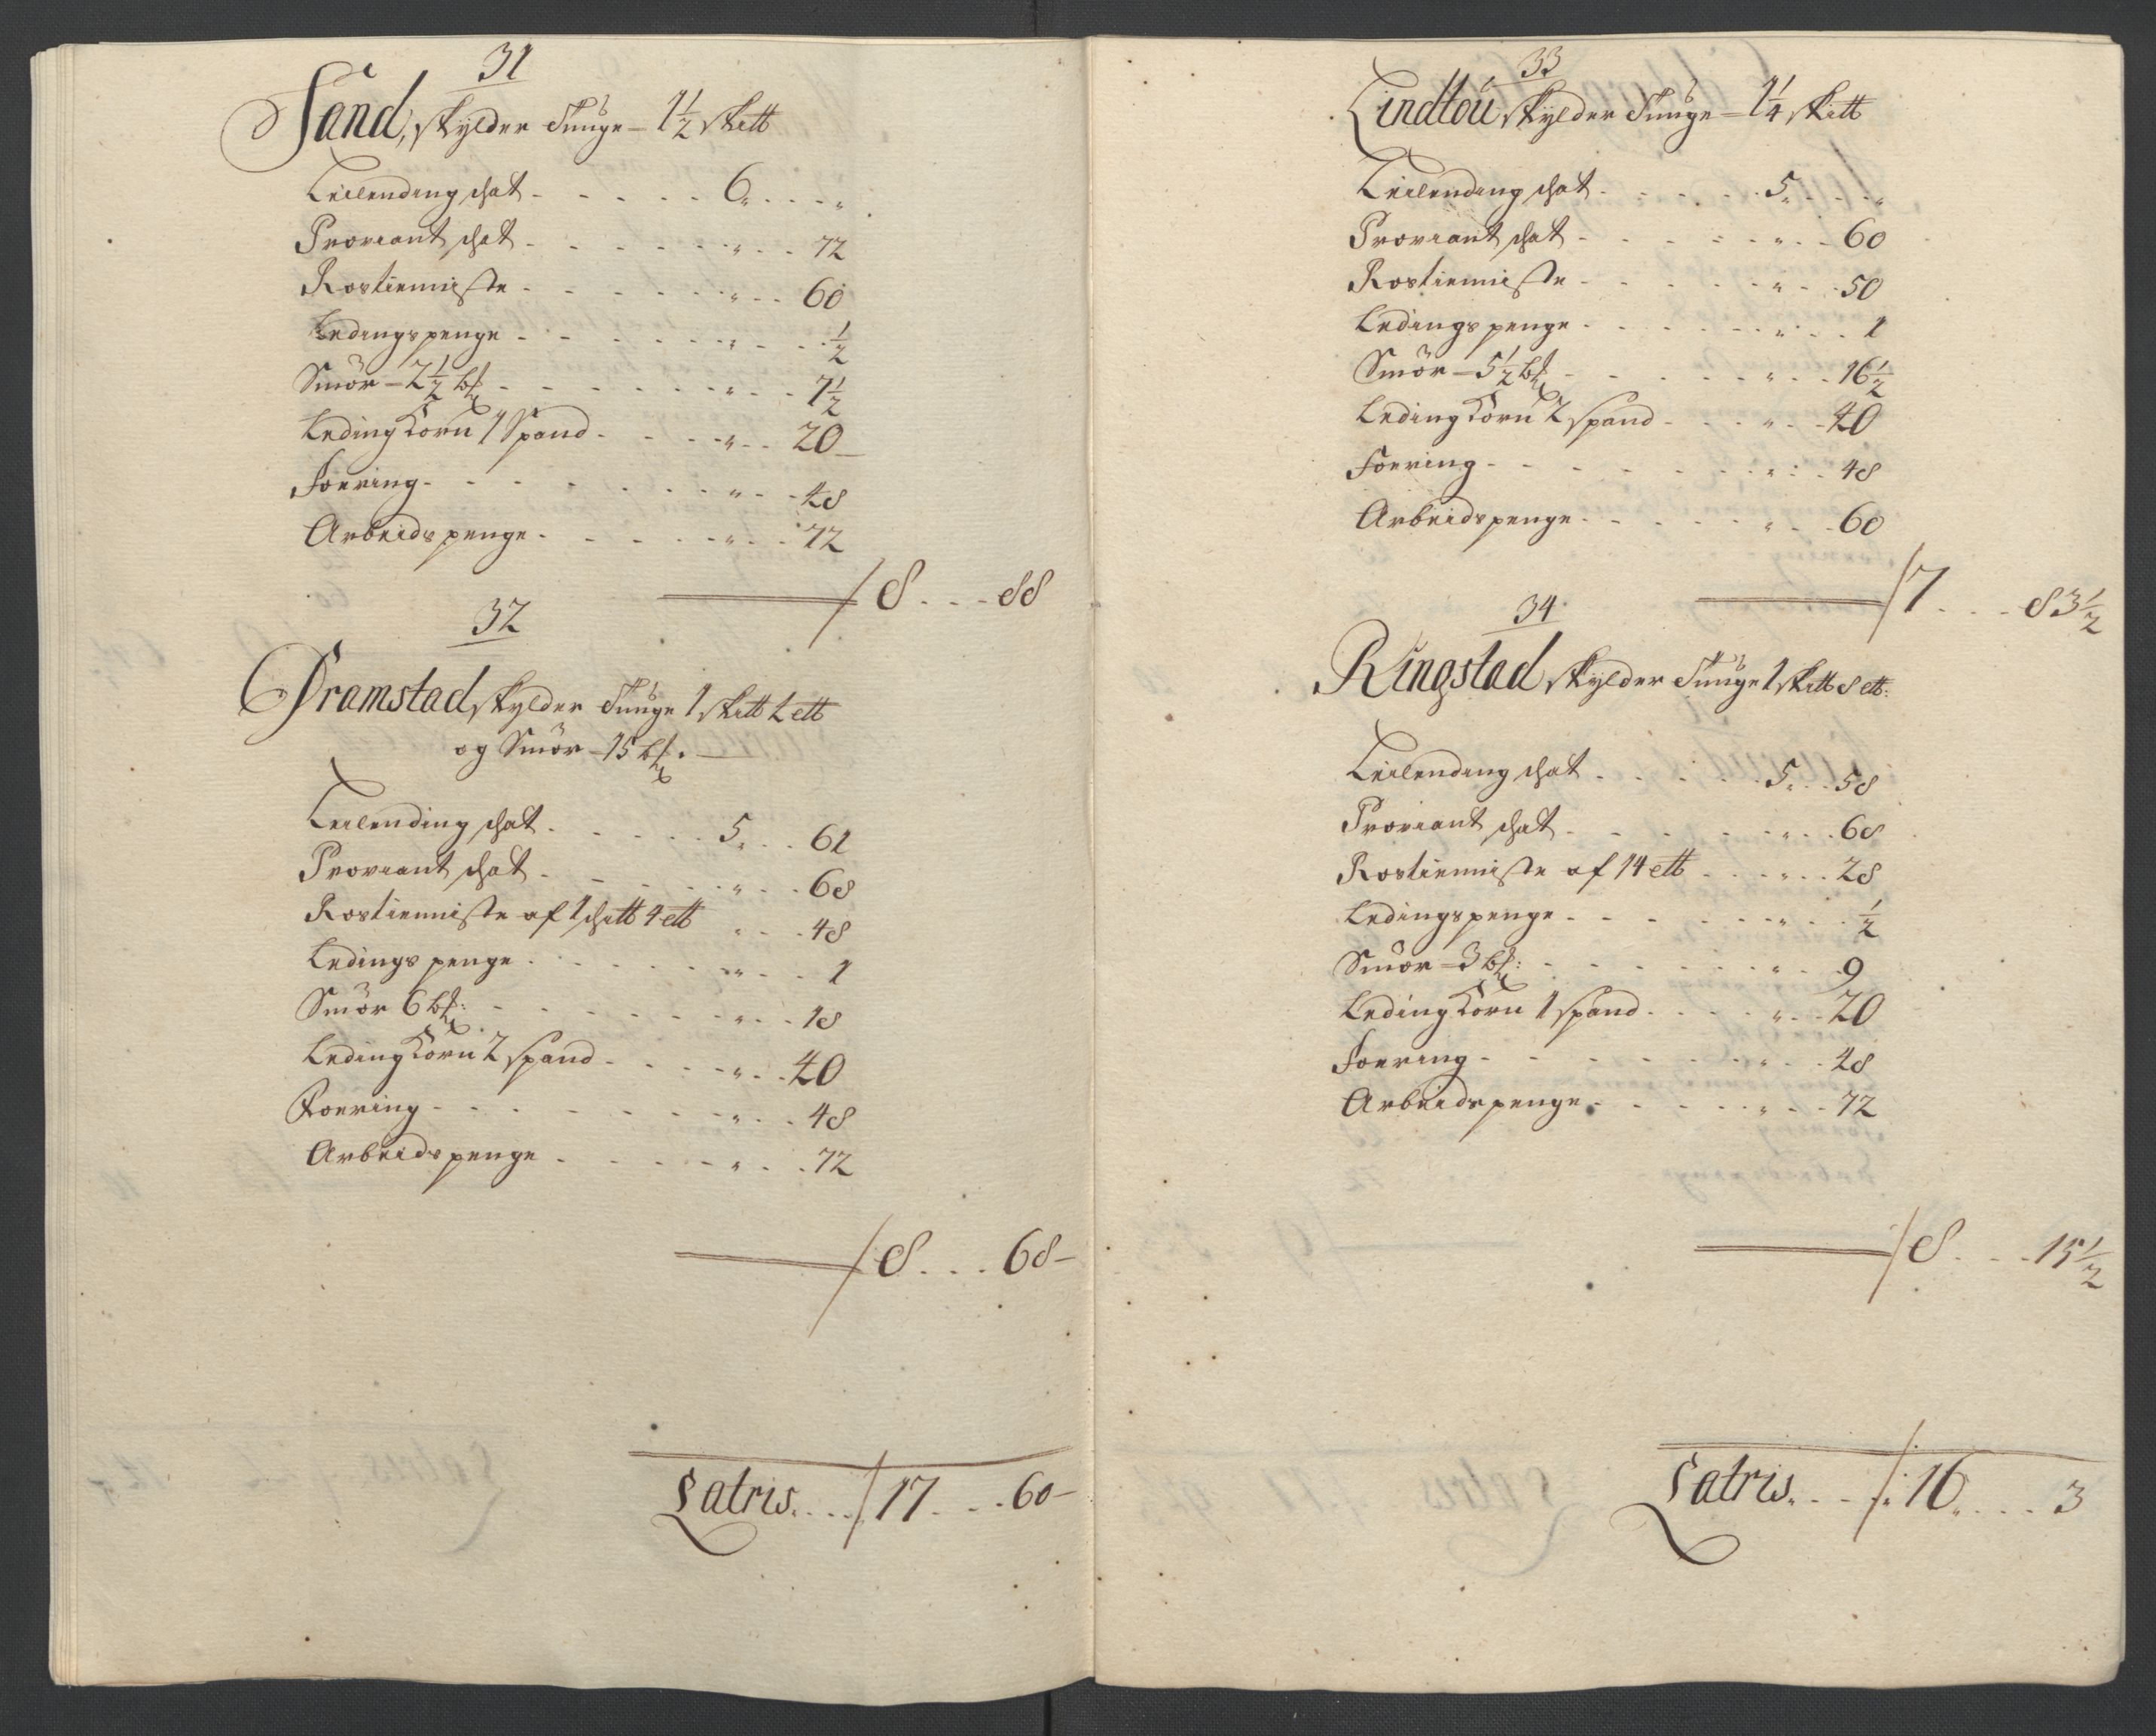 31
Sand, skylder Tunge - 1½ skill
Leilending schat - - - - - 6 „ . . . „
Proviant schat - - - - - „ - - 72
Rostieniste - - - - - „ - - 60
Ledingspenge - - - - - „ - - ½
Smör - 2½ - - - - - „ - - 7½
Leding Korn 1 Spand - - - „ - - 20
Foering - - - - - „ - - 48
Arbeidspenge - - - - - „ - - 72
8 . . . 88
32
Dramstad skylder Tunge 1 skill 2 ett
og Smör - 15
Leilending schat - - - - - 5 „ . . 61
Proviant schat - - - - - „ - - 68
Rostieniste af 1 schill 4 ett „ - - 48
Ledings penge - - - - - „ - - 1
Smör 6 - - - - - „ - - 18
Leding Korn 2 spand - - - „ - - 40
Foering - - - - - „ - - 48
Arbeidspenge - - - - - „ - - 72
8 . . . 68 -
Latris . . . . 17 . . . 60 -
33
Lindtou skylder Tunge - 1¼ skill
Leilending schat - - - - - 5 „ . . . „
Proviant schat - - - - - „ - - 60
Rostieniste - - - - - „ - - 50
Ledings penge - - - - - „ - - 1
Smör - 5½ - - - - - „ - - 16½
Leding Korn 2 spand - - - „ - - 40
Foering - - - - - „ - - 48
Arbeidspenge - - - - - „ - - 60
7 . . . 83½
34
Ringstad skylder Tunge 1 skill 8 ett:
Leilending schat - - - - - 5 „ . . 58
Proviant schat - - - - - „ - - 68
Rostieniste af 14 ett - - - „ - - 28
Ledingspenge - - - - - „ - - ½
Smör - 3 - - - - - „ - - 9
Leding Korn 1 spand - - - „ - - 20
Foering - - - - - „ - - 48
Arbeidspenge - - - - - „ - - 72
8 . . . 15½
Latris . . . . 16 „ . . . 3